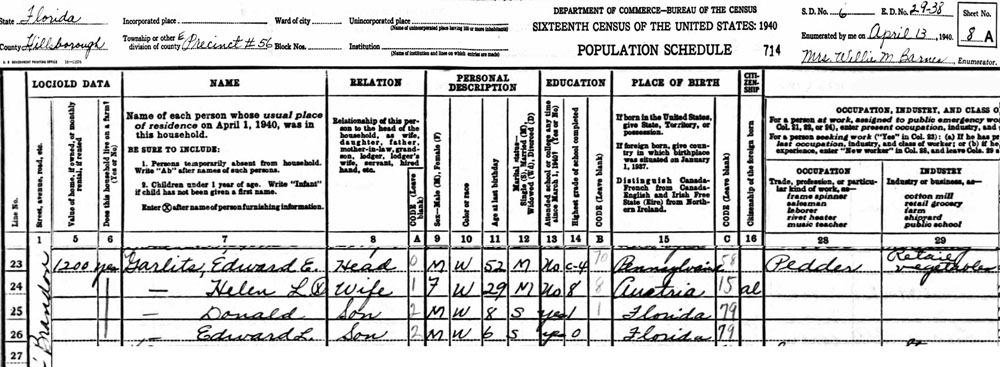 State Florida
Incorporated place
Ward of city
Unincorporated place
(Name of unincorporated place having 100 or more inhabitants)
County Hillsborough
Township or other division of county Precinct #56
Block Nos.
Institution
(Name of institution and lines on which entries are made)
DEPARTMENT OF COMMERCE—BUREAU OF THE CENSUS
SIXTEENTH CENSUS OF THE UNITED STATES: 1940
POPULATION SCHEDULE 714
S. D. No. 6 E. D. No. 29-38
Sheet No.
8 A
Enumerated by me on April 13, 1940.
Mrs. Willie M. Barnes, Enumerator.
Line No.
LOCIOLD DATA
Street, avenue, road, etc.
Value of home, if owned, or monthly rental, if rented
Does this household live on a farm? (Yes or No)
NAME
Name of each person whose usual place of residence on April 1, 1940, was in this household.
BE SURE TO INCLUDE:
1. Persons temporarily absent from household. Write "Ab" after names of such persons.
2. Children under 1 year of age. Write "Infant" if child has not been given a first name.
Enter X after name of person furnishing information.
RELATION
Relationship of this person to the head of the household, as wife, daughter, father, mother-in-law, grandson, lodger, lodger's wife, servant, hired hand, etc.
CODE (Leave blank)
PERSONAL DESCRIPTION
Sex—Male (M), Female (F)
Color or race
Age at last birthday
Marital status—Single (S), Married (M), Widowed (Wd), Divorced (D)
EDUCATION
Attended school or college any time since March 1, 1940? (Yes or No)
Highest grade of school completed
CODE (Leave blank)
PLACE OF BIRTH
If born in the United States, give State, Territory, or possession.
If foreign born, give country in which birthplace was situated on January 1, 1937.
Distinguish Canada-French from Canada-English and Irish Free State (Eire) from Northern Ireland.
CODE (Leave blank)
CITIZENSHIP
Citizenship of the foreign born
OCCUPATION, INDUSTRY, AND CLASS O
For a person at work, assigned to public emergency wo
Col. 21, 22, or 24), enter present occupation, industry, and
For a person seeking work ("Yes" in Col. 23): (a) If he has p
last occupation, industry, and class of worker; or (b) if he
experience, enter "New worker" in Col. 28, and leave Cols. 29 a
OCCUPATION
Trade, profession, or particular kind of work, as—
frame spinner
salesman
laborer
rivet heater
music teacher
INDUSTRY
Industry or business, as—
cotton mill
retail grocery
farm
shipyard
public school
1 5 6 7 8 A 9 10 11 12 13 14 B 15 C 16 28 29
Brandon
23 1200 yes Garlits, Edward E. Head 0 M W 52 M No C-4 70 Pennsylvania 58 Pedder Retail vegetables
24 — Helen L. X Wife 1 F W 29 M No 8 8 Austria 15 al
25 — Donald Son 2 M W 8 S yes 1 1 Florida 79
26 — Edward L. Son 2 M W 6 S yes 0 Florida 79
27